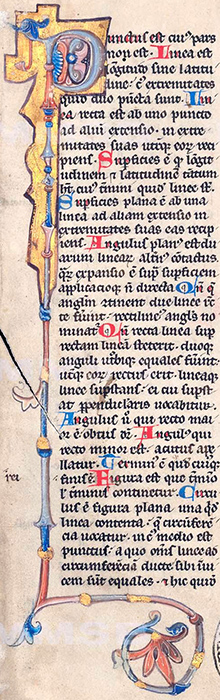 Punctus est cuius pars
non est. Linea est
lõgitudo sine latitu
dine. cuius extremitates
quidem duo puncta sunt. Lin
ea recta est ab uno puncto
ad aliũ extensio. in extre
mitates suas utrũque eorum reci
piens. Supficies ē q̃ longit
udinem et latitudinē tantum
ht. cuius termini quidem linee st.
Supficies plana ē ab una
linea ad aliam extensio in
extremitates suas eas recip
iens. Angulus planus est du
arum linearum alternus cõtactus.
quarum expansio ē sup supficiem
applicatioque nõ directa. Qñ
angulum continent due linee rec
te fuint. rectiline' angls no
minat. Qñ recta linea sup
rectam linea steterit. duoque
anguli utrobique equales fuint:
utque eorum rectus erit. lineaque
linee supstans. ei cui supst
at ppendicularis vocabitur.
Angulus ũ qui recto maior
ē obtusus dr. Angulus ũ qui
recto minor est. acutus appe
llatur. Terminus ē quod cuiusque
finis ē. Figura est que tmino
ũl tminis continetur. Circu
lus ē figura plana una quidem
linea contenta. que circũferen
cia vocatur. in cuius medio est
punctus. a quo omnes linee ad
circumferentiam ducte sibi inui
cem sunt equales. et hic quidem